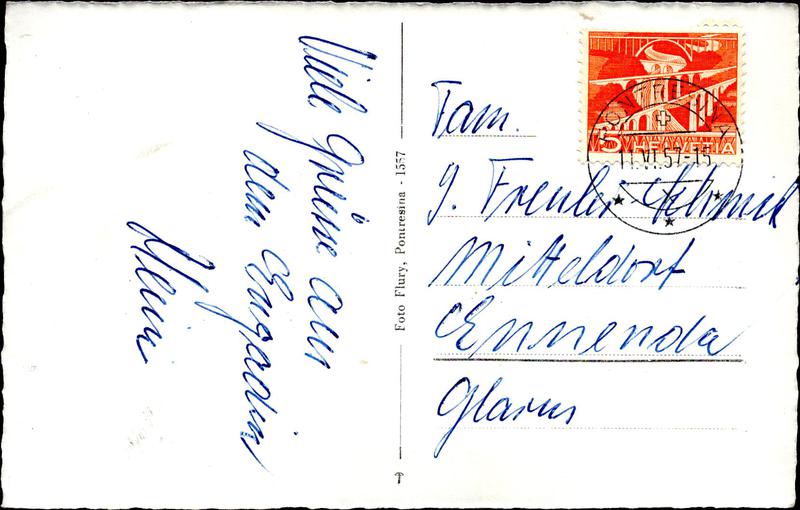 Viele Grüsse aus
dem Engadin
Foto Flury, Pontresina - 1557
5 HELVETIA
PONTRESINA
11.VI.57-15
Fam.
J. Freuler Schmid
Mitteldorf
Ennenda
Glarus